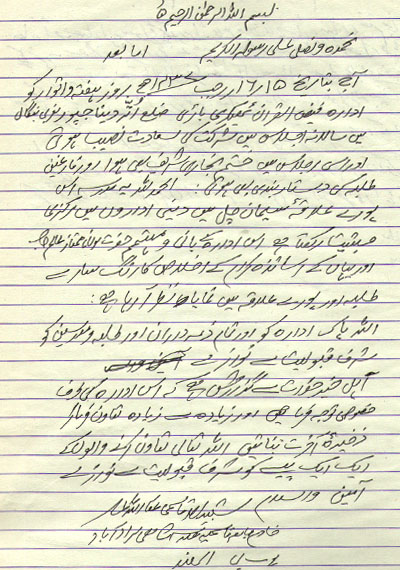 بسم اللہ الرحمن الرحیم
نحمدہ ونصلی علی رسولہ الکریم اما بعد
آج بتاریخ ۱۵/۱۶ رجب روز ہفتہ واتوار کو
ادارہ فیض القرآن ٹھیکری باڑی ضلع اتر دیناجپور بنگال
میں سالانہ اجلاس میں شرکت کی سعادت نصیب ہوئی
اور اسی اجلاس میں ختم بخاری شریف بھی ہوا اور فارغین
طلبہ کی دستار بندی بھی ہوئی الحمد للہ یہ مدرسہ اس
پورے علاقہ میں دینی اداروں میں مرکزی
حیثیت رکھتا ہے اس ادارہ کے بانی و مہتمم حضرت مولانا ممتاز عالم
اور یہاں کے اساتذہ کرام کے اخلاص کا رنگ سارے
طلبہ اور پورے علاقہ میں نمایاں نظر آرہا ہے
اللہ پاک ادارہ کو اور تمام ذمہ داران اور طلبہ و مدرسین کو
شرف قبولیت سے نوازے
اہل خیر حضرات سے گزارش ہے کہ اس ادارہ کی طرف
خصوصی توجہ فرمائیں اور زیادہ سے زیادہ تعاون فرماکر
ذخیرۂ آخرت بنائیں اللہ تعالی تعاون کرنے والوں کے
ایک ایک پیسے کو شرف قبولیت سے نوازے
آمین والسلام شبیر احمد قاسمی عفا اللہ عنہ
خادم جامعہ قاسمیہ مدرسہ شاہی مرادآباد
یوپی الہند